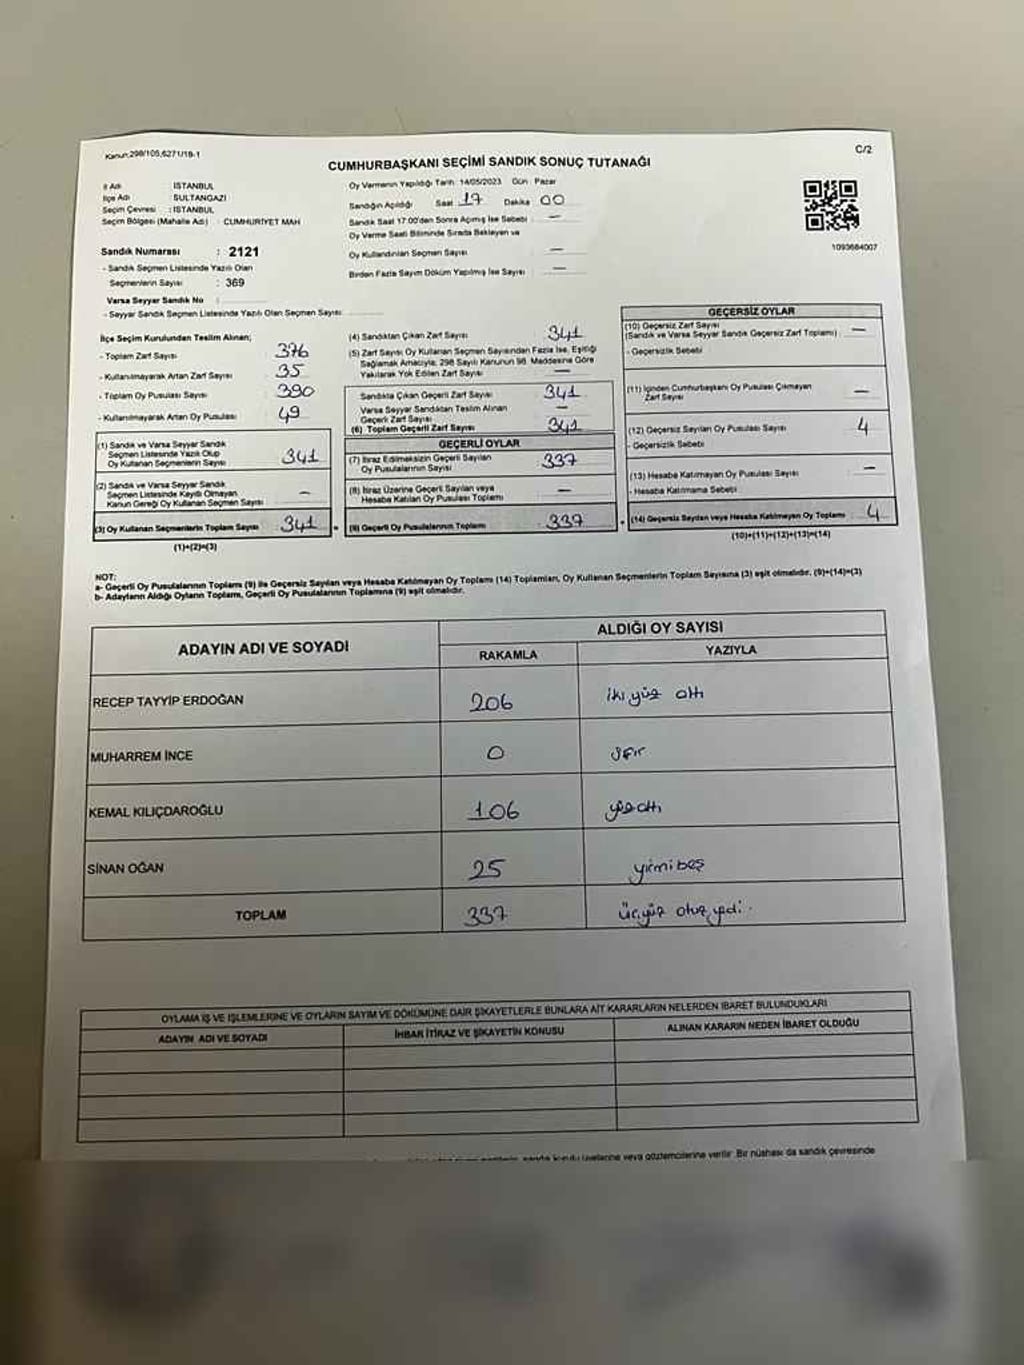 Kanun:298/105,6271/18-1
C/2
CUMHURBAŞKANI SEÇİMİ SANDIK SONUÇ TUTANAĞI
İl Adı : İSTANBUL
İlçe Adı : SULTANGAZİ
Seçim Çevresi : İSTANBUL
Seçim Bölgesi (Mahalle Adı) : CUMHURİYET MAH
Sandık Numarası : 2121
- Sandık Seçmen Listesinde Yazılı Olan
Seçmenlerin Sayısı : 369
Varsa Seyyar Sandık No :
- Seyyar Sandık Seçmen Listesinde Yazılı Olan Seçmen Sayısı:
Oy Vermenin Yapıldığı Tarih: 14/05/2023 Gün : Pazar
Sandığın Açıldığı Saat 17 Dakika 00
Sandık Saat 17:00'den Sonra Açılmış İse Sebebi : —
Oy Verme Saati Bitiminde Sırada Bekleyen ve
Oy Kullandırılan Seçmen Sayısı : —
Birden Fazla Sayım Döküm Yapılmış İse Sayısı : —
1093664007
İlçe Seçim Kurulundan Teslim Alınan;
- Toplam Zarf Sayısı : 376
- Kullanılmayarak Artan Zarf Sayısı : 35
- Toplam Oy Pusulası Sayısı : 390
- Kullanılmayarak Artan Oy Pusulası : 49
(1) Sandık ve Varsa Seyyar Sandık
Seçmen Listesinde Yazılı Olup
Oy Kullanan Seçmenlerin Sayısı : 341
(2) Sandık ve Varsa Seyyar Sandık
Seçmen Listesinde Kayıtlı Olmayan
Kanun Gereği Oy Kullanan Seçmen Sayısı : —
(3) Oy Kullanan Seçmenlerin Toplam Sayısı : 341
(1)+(2)=(3)
(4) Sandıktan Çıkan Zarf Sayısı : 341
(5) Zarf Sayısı Oy Kullanan Seçmen Sayısından Fazla İse, Eşitliği
Sağlamak Amacıyla, 298 Sayılı Kanunun 98. Maddesine Göre
Yakılarak Yok Edilen Zarf Sayısı : —
Sandıkta Çıkan Geçerli Zarf Sayısı : 341
Varsa Seyyar Sandıktan Teslim Alınan
Geçerli Zarf Sayısı : —
(6) Toplam Geçerli Zarf Sayısı : 341
GEÇERLİ OYLAR
(7) İtiraz Edilmeksizin Geçerli Sayılan
Oy Pusulalarının Sayısı : 337
(8) İtiraz Üzerine Geçerli Sayılan veya
Hesaba Katılan Oy Pusulası Toplamı : —
(9) Geçerli Oy Pusulalarının Toplamı : 337
GEÇERSİZ OYLAR
(10) Geçersiz Zarf Sayısı
(Sandık ve Varsa Seyyar Sandık Geçersiz Zarf Toplamı) : —
- Geçersizlik Sebebi :
(11) İçinden Cumhurbaşkanı Oy Pusulası Çıkmayan
Zarf Sayısı : —
(12) Geçersiz Sayılan Oy Pusulası Sayısı : 4
- Geçersizlik Sebebi :
(13) Hesaba Katılmayan Oy Pusulası Sayısı : —
- Hesaba Katılmama Sebebi :
(14) Geçersiz Sayılan veya Hesaba Katılmayan Oy Toplamı : 4
(10)+(11)+(12)+(13)=(14)
NOT:
a- Geçerli Oy Pusulalarının Toplamı (9) ile Geçersiz Sayılan veya Hesaba Katılmayan Oy Toplamı (14) Toplamları, Oy Kullanan Seçmenlerin Toplam Sayısına (3) eşit olmalıdır. (9)+(14)=(3)
b- Adayların Aldığı Oyların Toplamı, Geçerli Oy Pusulalarının Toplamına (9) eşit olmalıdır.
ADAYIN ADI VE SOYADI ALDIĞI OY SAYISI
RAKAMLA YAZIYLA
RECEP TAYYİP ERDOĞAN 206 iki yüz altı
MUHARREM İNCE 0 sıfır
KEMAL KILIÇDAROĞLU 106 yüzaltı
SİNAN OĞAN 25 yirmibeş
TOPLAM 337 üçyüz otuz yedi.
OYLAMA İŞ VE İŞLEMLERİNE VE OYLARIN SAYIM VE DÖKÜMÜNE DAİR ŞİKAYETLERLE BUNLARA AİT KARARLARIN NELERDEN İBARET BULUNDUKLARI
ADAYIN ADI VE SOYADI İHBAR İTİRAZ VE ŞİKAYETİN KONUSU ALINAN KARARIN NEDEN İBARET OLDUĞU
sandık kurulu üyelerine veya gözlemcilerine verilir. Bir nüshası da sandık çevresinde